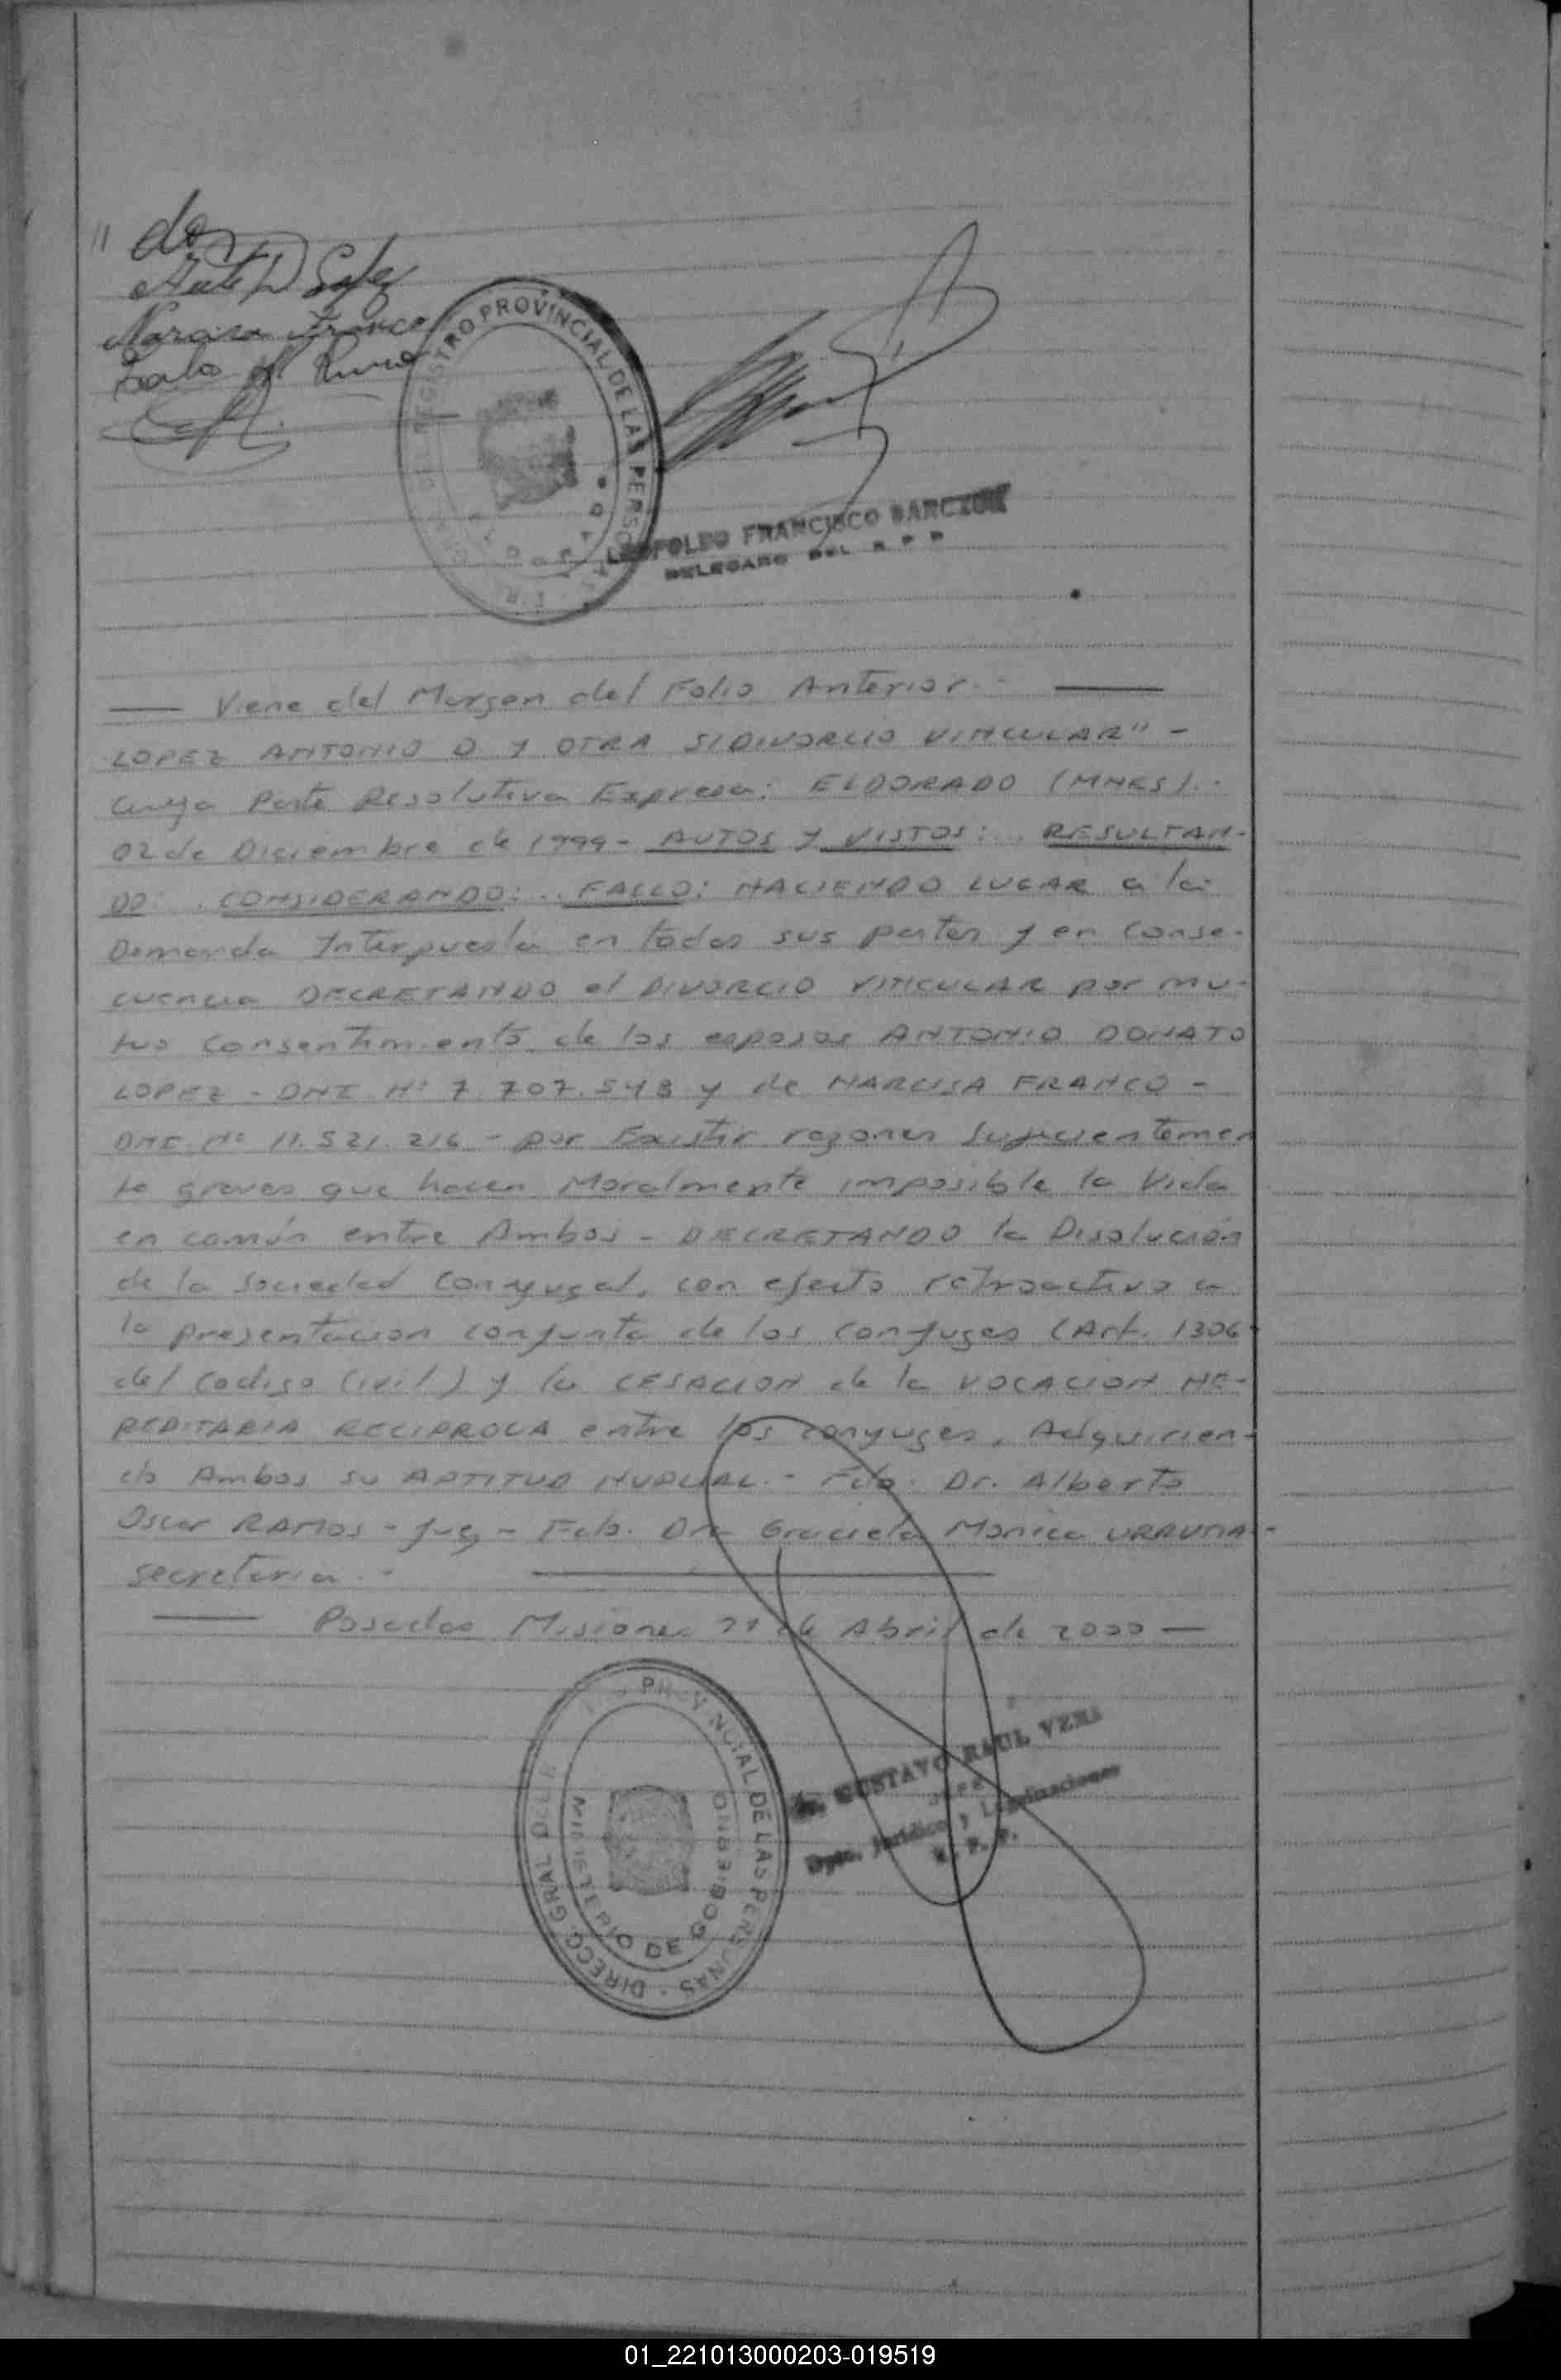 " don
Narcisa Franco
REGISTRO PROVINCIAL DE LAS PERSONAS
LEOPOLDO FRANCISCO
DELEGADO DEL R P P
Viene del Margen del Folio Anterior.-
LOPEZ ANTONIO D. Y OTRA S/DIVORCIO VINCULAR" -
cuya Parte Resolutiva Expresa: ELDORADO (MNES).-
02 de Diciembre de 1999- AUTOS Y VISTOS: .. RESULTAN-
DO: .. CONSIDERANDO: .. FALLO: HACIENDO LUGAR a la
Demanda Interpuesta en todas sus partes y en conse-
cuencia DECRETANDO el DIVORCIO VINCULAR por mu-
tuo consentimiento de los esposos ANTONIO DONATO
LOPEZ - DNI. Nº 7.707.548 y de NARCISA FRANCO -
DNI. Nº 11.521.216 - por Existir razones suficientemen
te graves que hacen Moralmente imposible la Vida
en común entre Ambos - DECRETANDO la Disolución
de la Sociedad Conyugal, con efecto retroactivo a
la presentacion conjunta de los conyuges (Art. 1306
del Codigo Civil) y la CESACION de la VOCACION HE-
REDITARIA RECIPROCA entre los conyuges, Adquirien-
do Ambos su APTITUD NUPCIAL.- Fdo. Dr. Alberto
Oscar RAMOS - Juez - Fdo. Dra Graciela Monica
secretaria.-
Posadas Misiones de Abril de 2000 —
DIRECC. GRAL. DEL R. PROVINCIAL DE LAS PERSONAS
MINISTERIO DE GOBIERNO
Dr. GUSTAVO RAUL VERA
JEFE
Dpto. Jurídico y Legalizaciones
R. P. P.
01_221013000203-019519